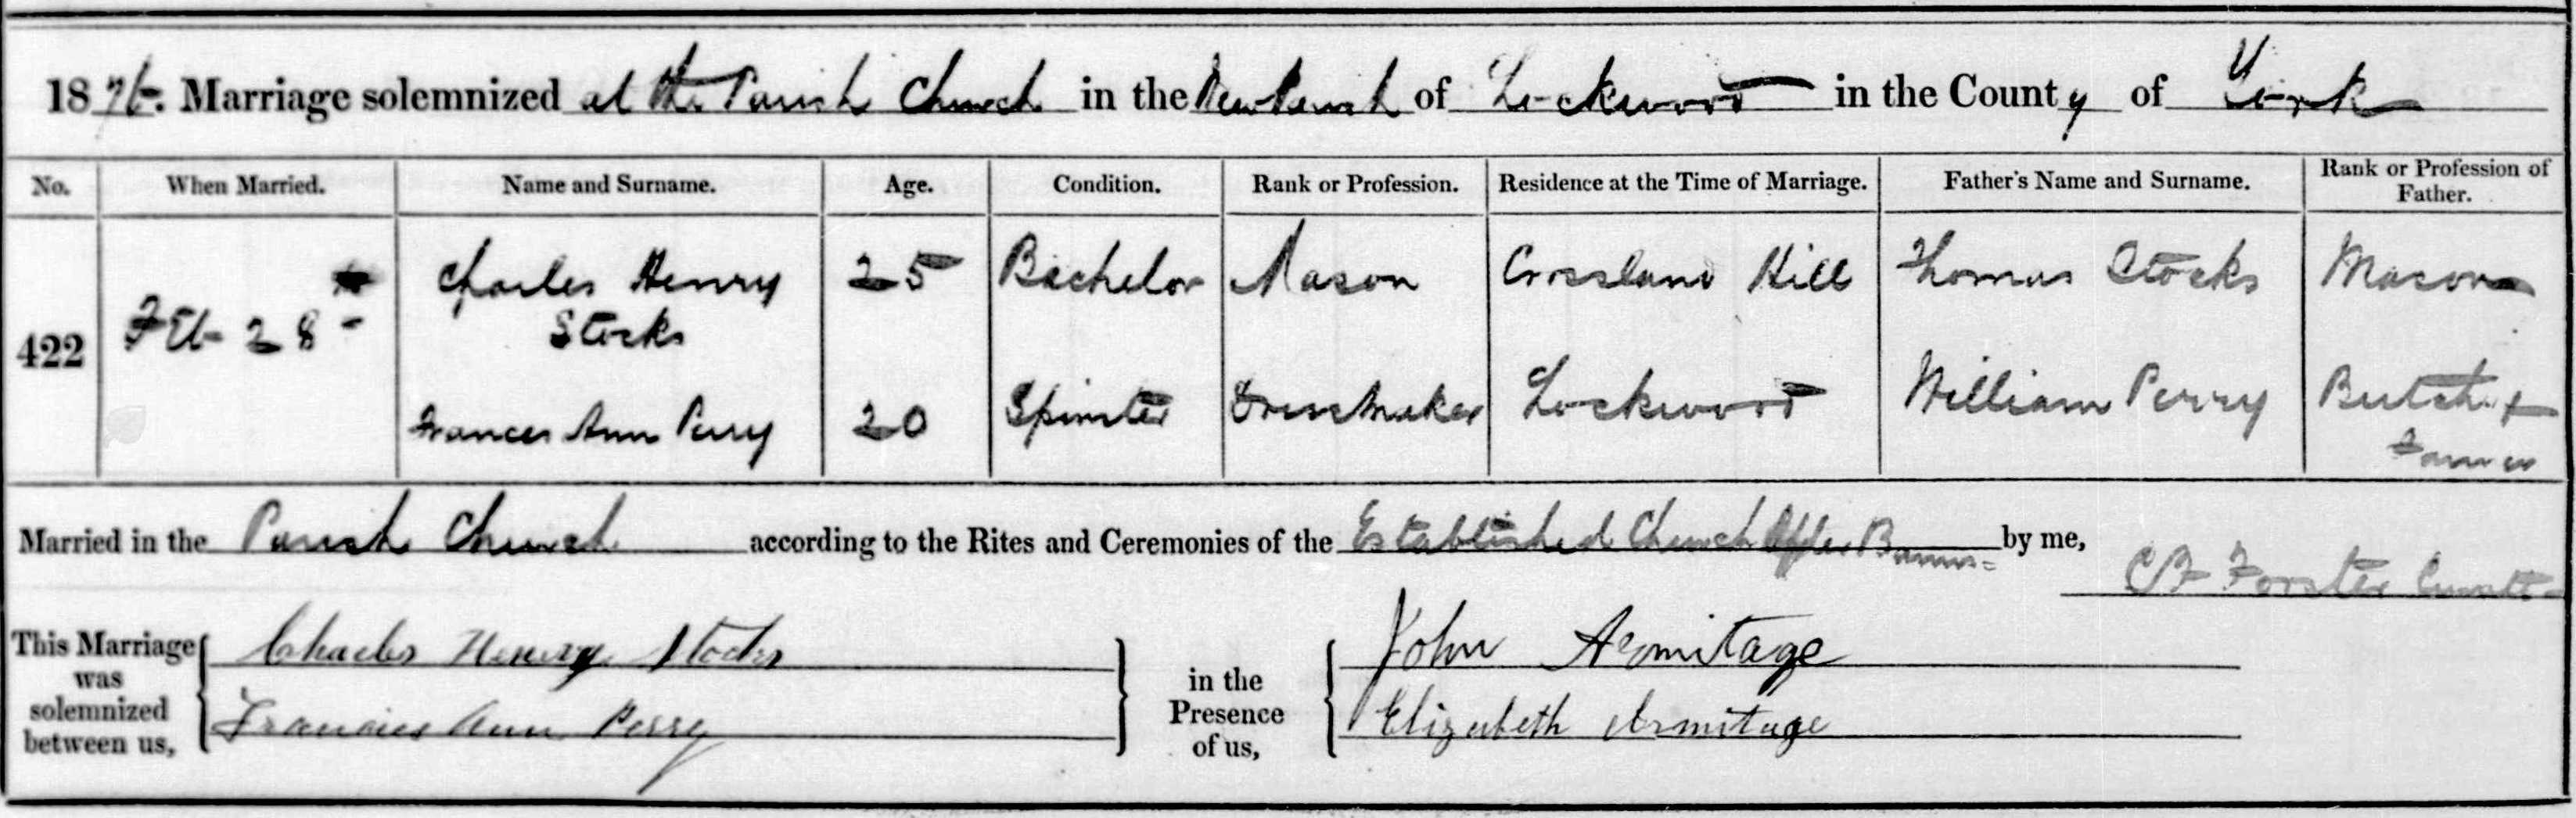 1876. Marriage solemnized at the Parish Church in the New Parish of Lockwood in the County of York
No. When Married. Name and Surname. Age. Condition. Rank or Profession. Residence at the Time of Marriage. Father's Name and Surname. Rank or Profession of Father.
422 Feb 28 Charles Henry Stocks 25 Bachelor Mason Crosland Hill Thomas Stocks Mason
Frances Ann Perry 20 Spinster Dressmaker Lockwood William Perry Butcher
Farmer
Married in the Parish Church according to the Rites and Ceremonies of the Established Church After Banns by me,
C F Forster Curate
This Marriage was solemnized between us, Charles Henry Stocks in the Presence of us, John Armitage
Francies Ann Perry Elizabeth Armitage